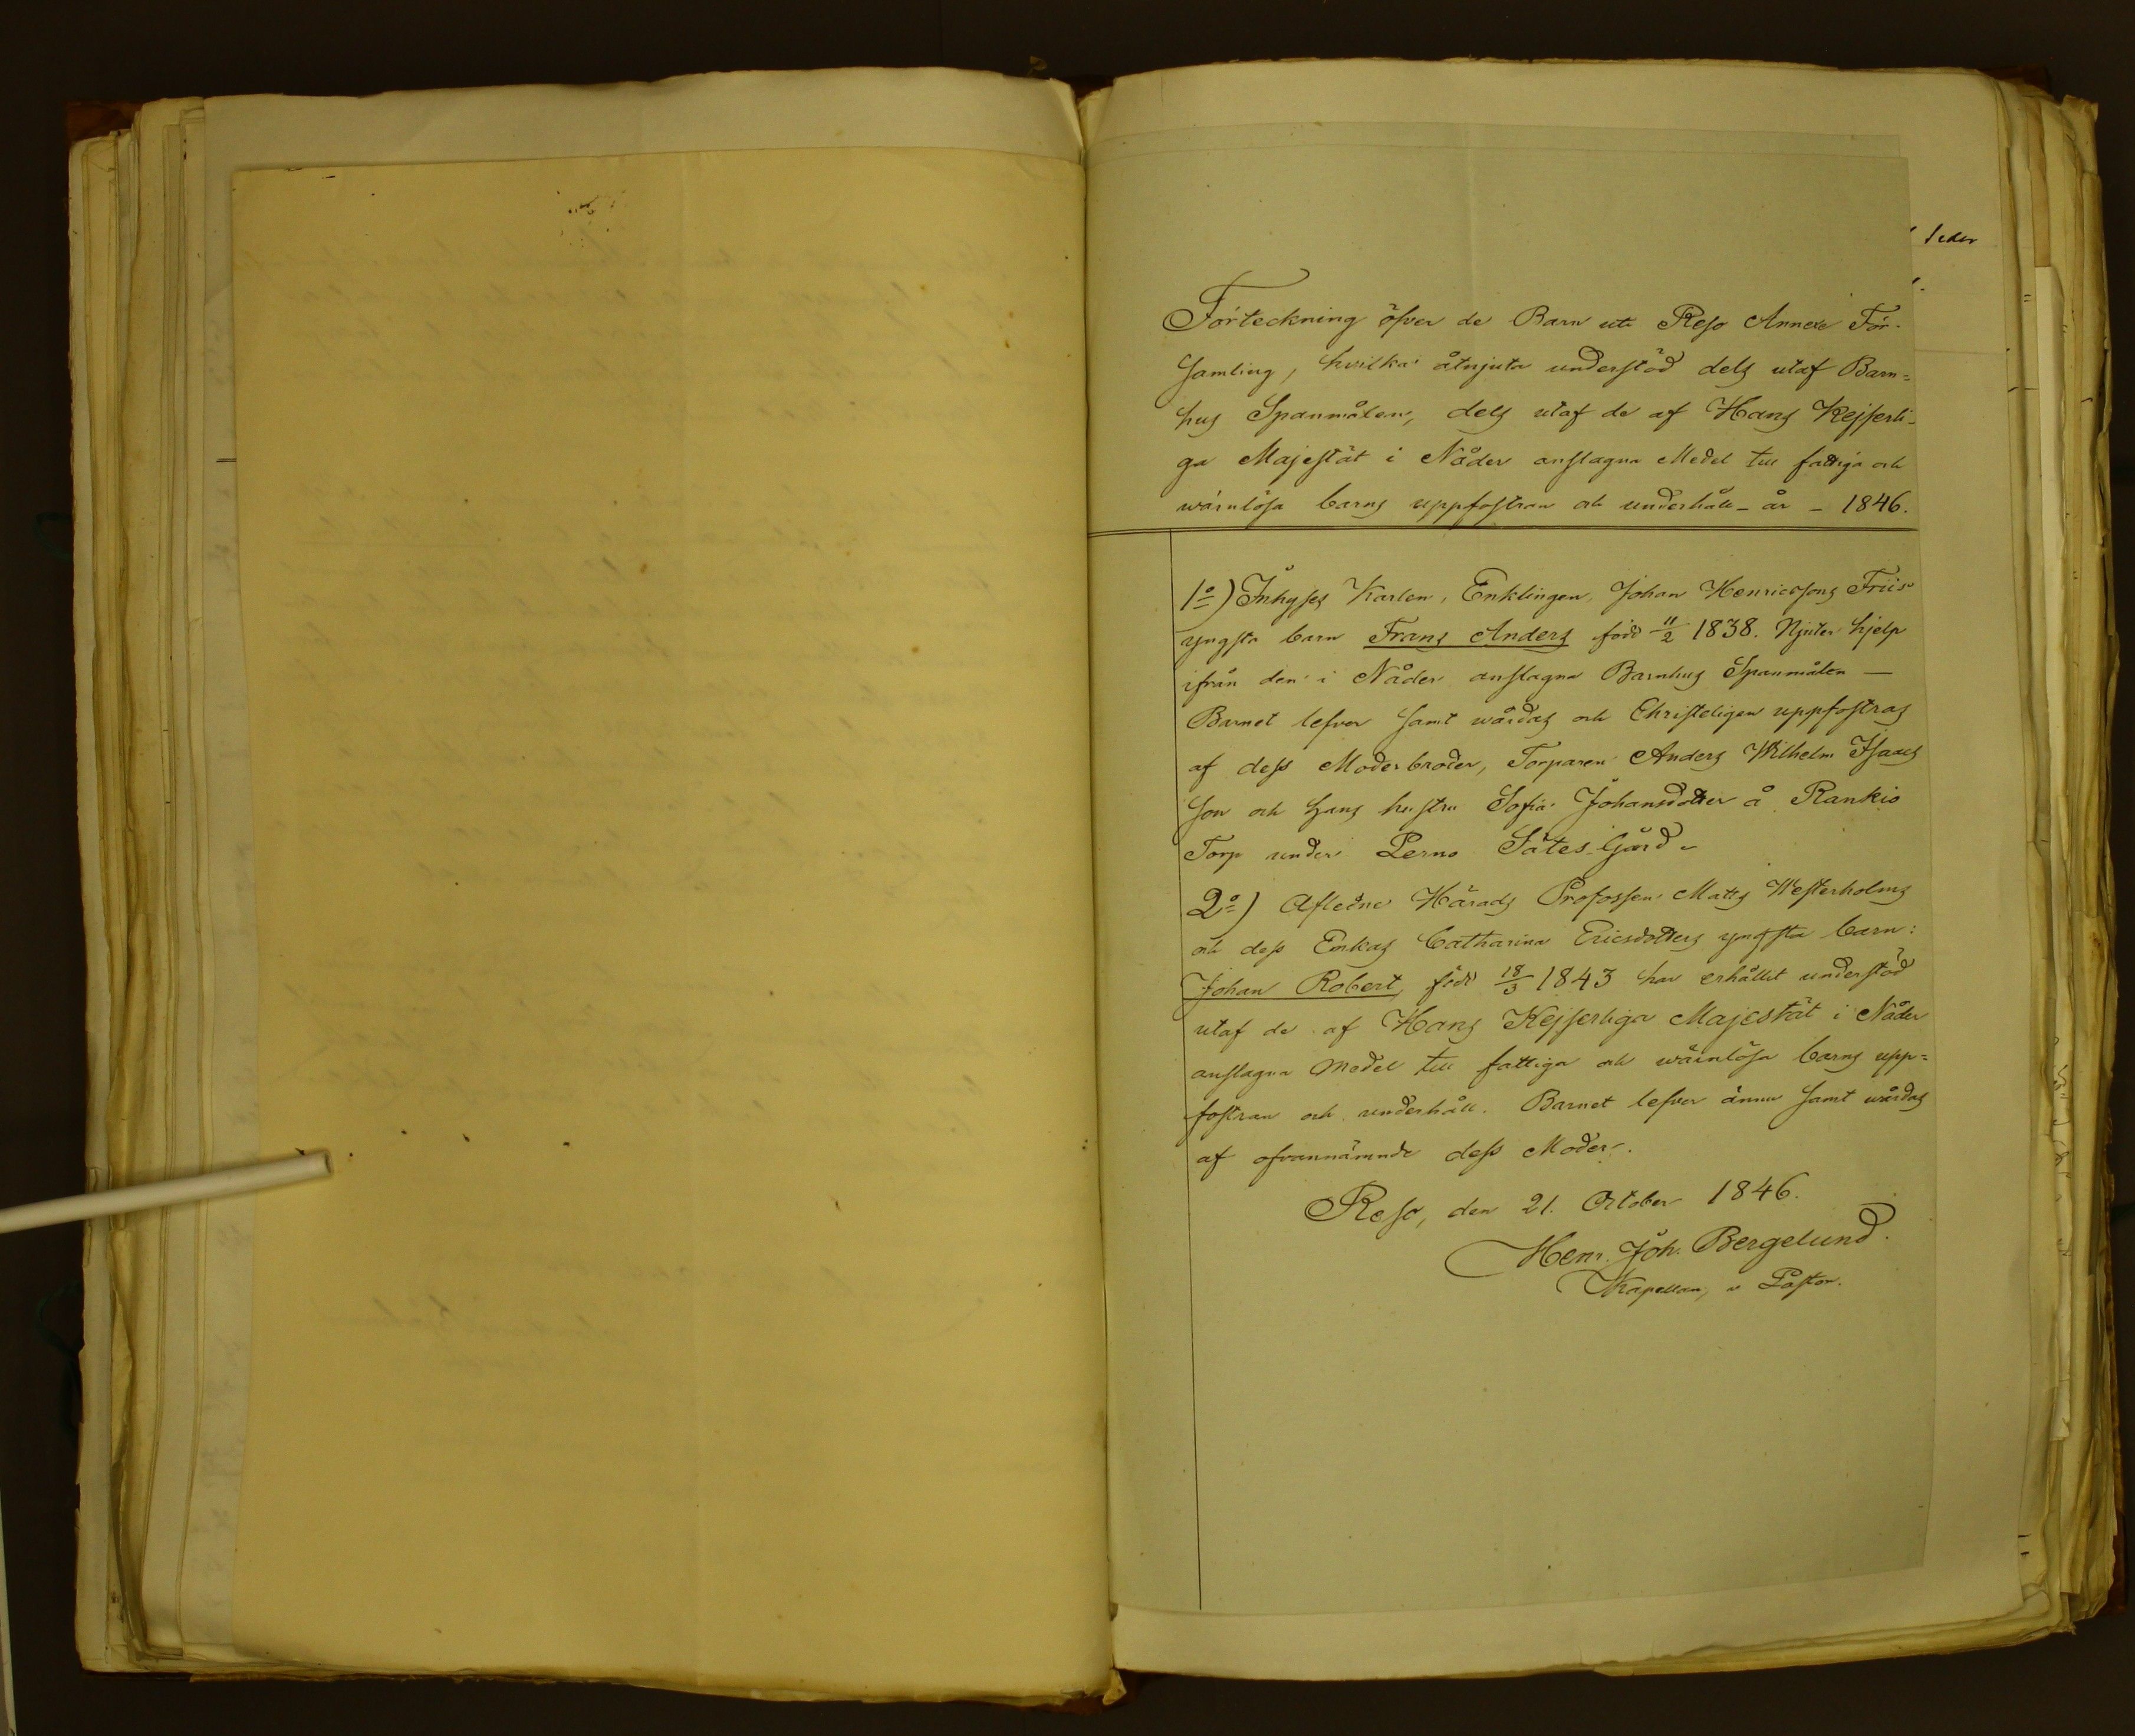 Förteckning öfver de Barn uti Reso Annexe För-
samling, hvilka åtnjuta understöd dels utaf Barn=
hus Spanmålen, dels utaf de af Hans Kejserli-
ga Majestät i Nåder anslagna Medel till fattiga och
wärnlösa barns uppfostran och underhåll - år - 1846.
1o) Inhyses Karlen, Enklingen, Johan Henricsons Friis
yngsta barn Frans Anders född 11/2 1838. Njuter hjelp
ifrån den i Nåder anslagna Barnhus Spanmålen —
Barnet lefver samt wårdas och Christeligen uppfostras
af dess Moderbroder, Torparen Anders Wilhelm Isaacs
son och hans hustru Sofia Johansdotter å Rankio
Torp under Perno Sätes-Gård.
2o) Afledne Härads Profossen Matts Westerholms
och dess Enkas Catharina Ericsdotters yngsta barn:
Johan Robert, född 18/3 1843 har erhållit understöd
utaf de af Hans Kejserliga Majestät i Nåder
anslagna Medel till fattiga och wärnlösa barns upp=
fostran och underhåll. Barnet lefver ännu samt wårdas
af ofvannämnde dess Moder.
Reso, den 21. October 1846.
Henr. Joh. Bergelund.
Kapellan, v Pastor.